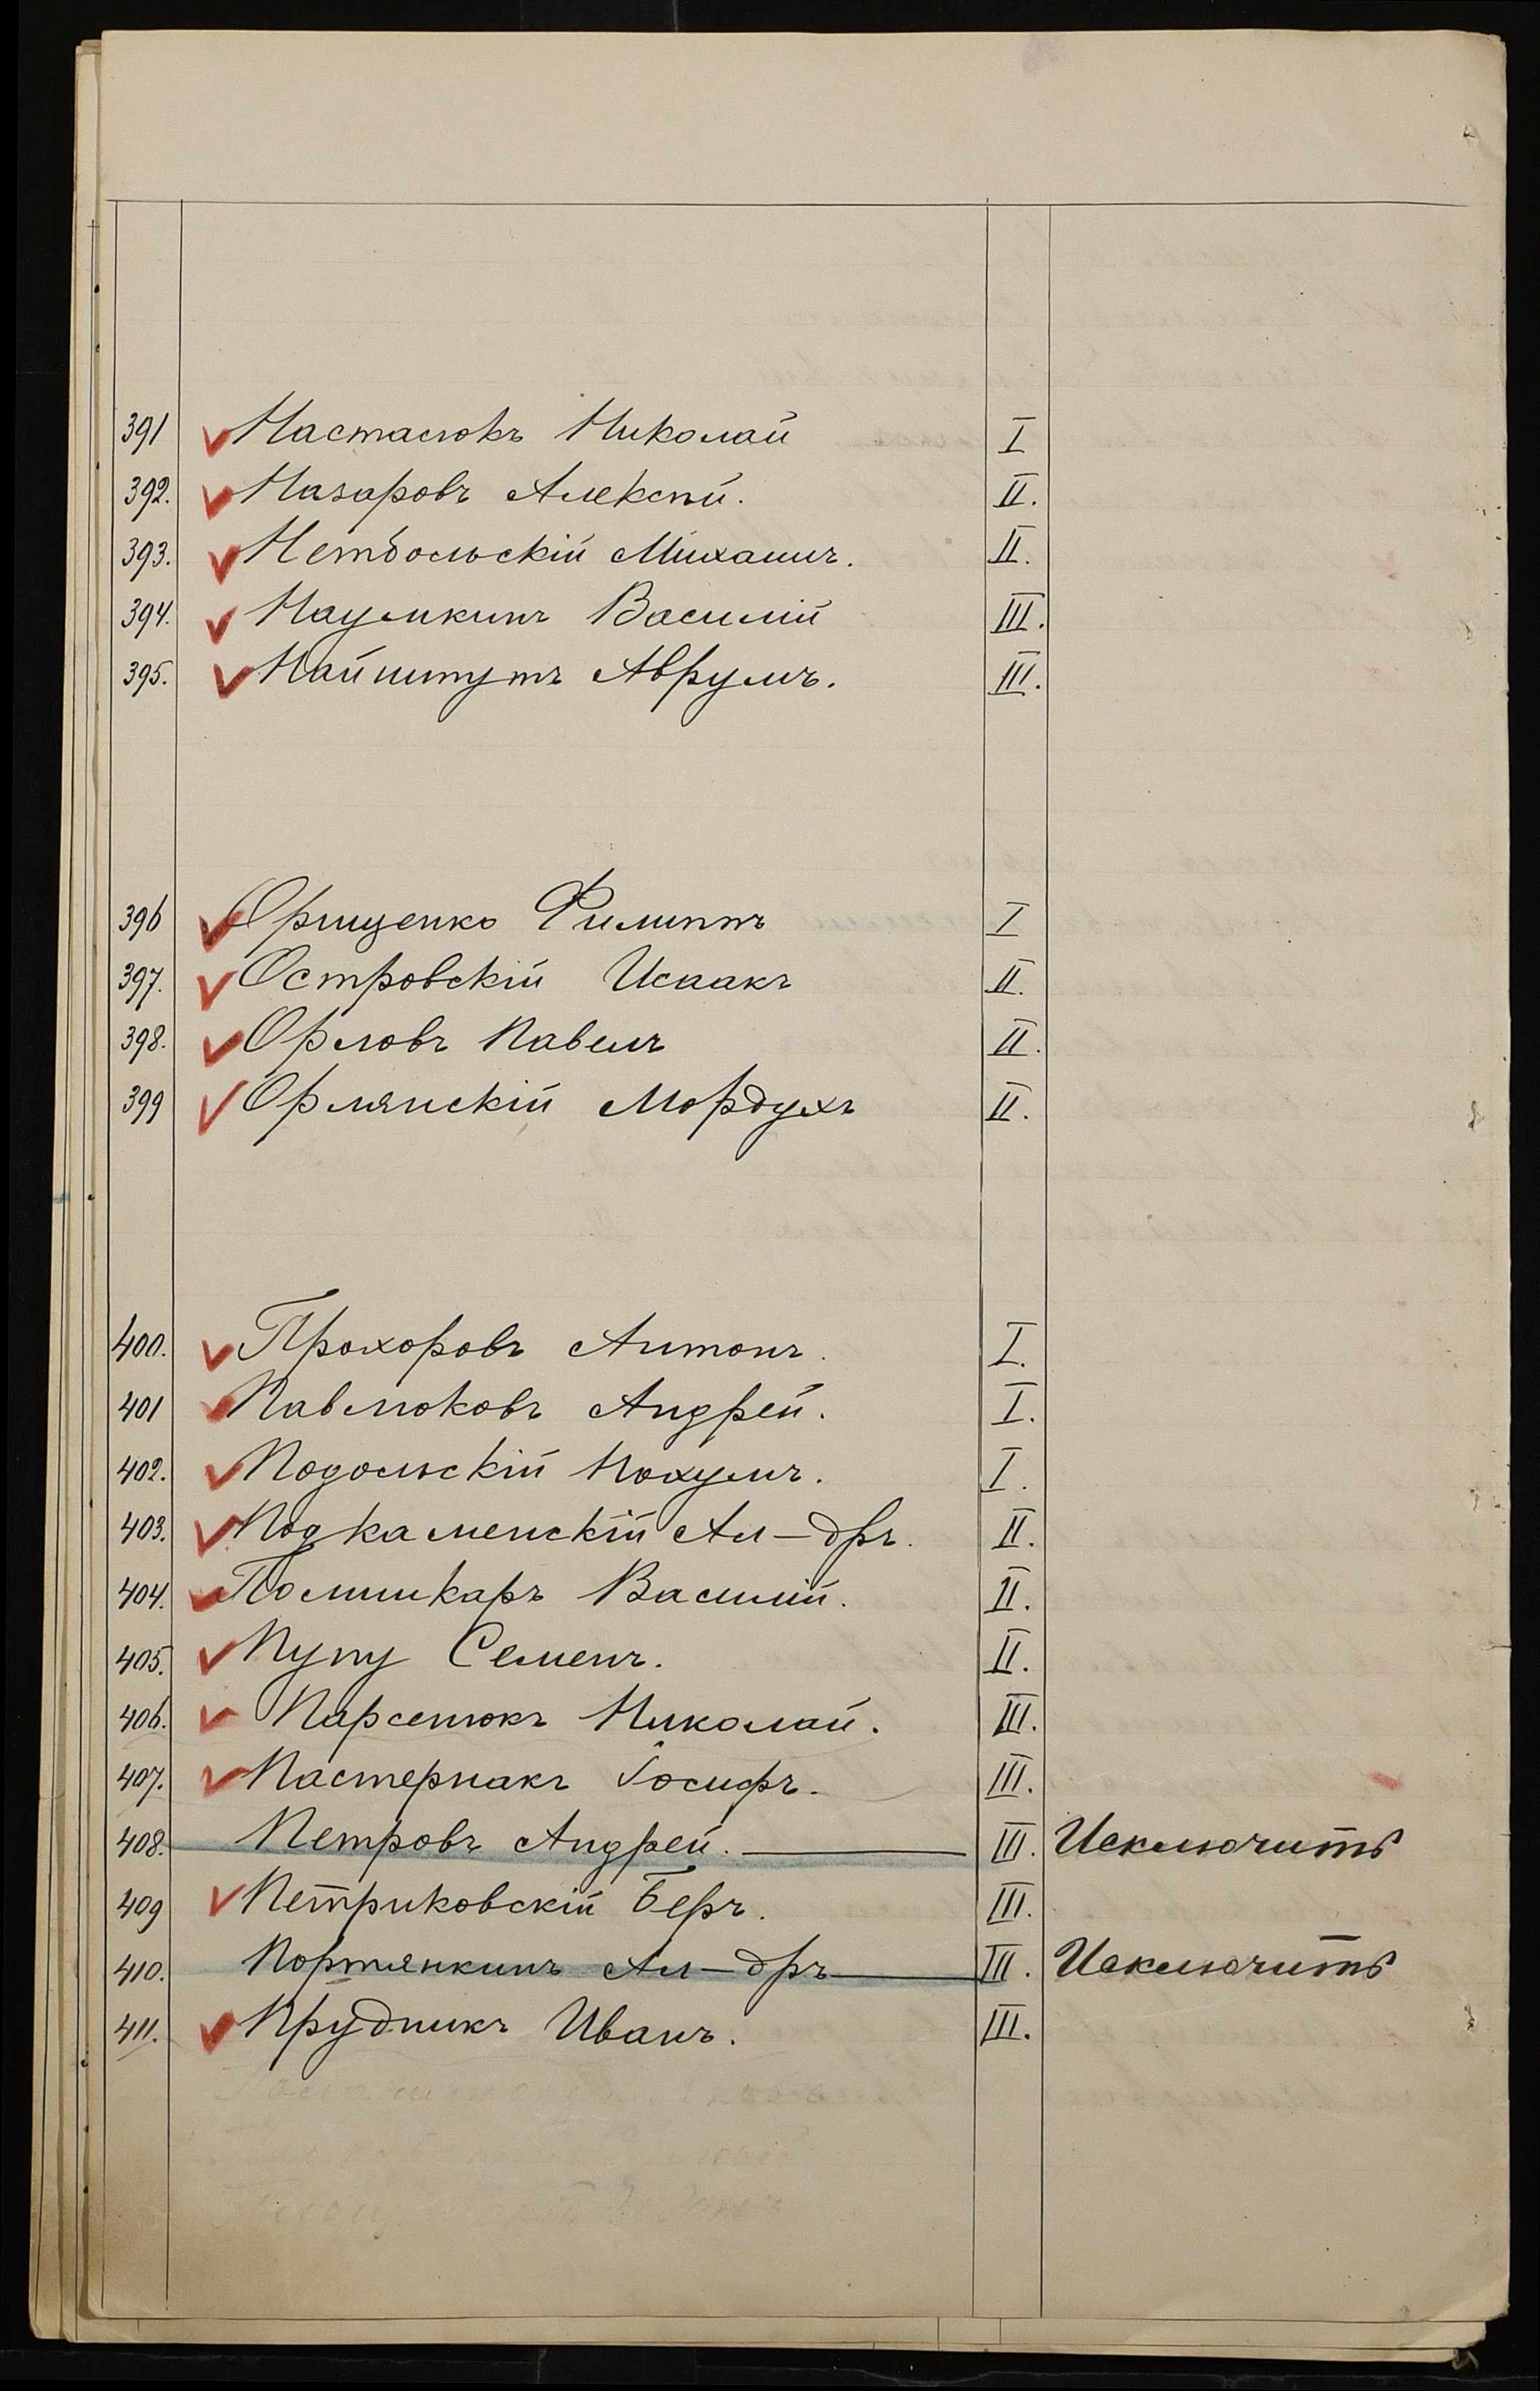 391 Настасюкъ Николай I
392. Назаровъ Алексѣй. II.
393. Нетбольскій Михаилъ. II.
394. Наумкинъ Василій III.
395. Найштутъ Аврумъ. III.
396 Орищенко Филиппъ I
397. Островскій Исаакъ II.
398. Орловъ Павелъ II.
399 Орлянскій Мордухъ II.
400. Прохоровъ Антонъ. I.
401 Павлюковъ Андрей. I.
402. Подольскій Нохумъ. I.
403. Подкаменскій Ал-дръ. II.
404. Василій. II.
405. Пупу Семенъ. II.
406. Парсенюкъ Николай. III.
407. Пастернакъ Іосифъ. III.
408. Петровъ Андрей. III. Исключить
409 Петриковскій Беръ. III.
410. Портянкинъ Ал-дръ III. Исключить
411. Прудникъ Иванъ. III.